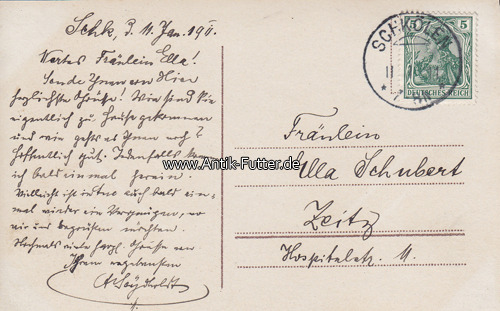 Schk, d. 11. Jan. 1911.
Wertes Fräulein Ella!
Sende Ihnen von Hier
herzlichste Grüße! Wie sind Sie
eigentlich zu Hause gekommen
und wie geht es Ihnen noch?
Hoffentlich gut. Jedenfalls
ich bald einmal herein.
Vielleicht ist in auch bald ein-
mal wieder ein Vergnügen, wo
wir uns begrüßen möchten.
Nochmals viele herzl. Grüße von
Ihrem ergebenen
SCHKÖLEN
11
5
DEUTSCHES REICH
www.Antik-Futter.de
Fräulein
Ella Schubert
Zeitz
Hospitalstr. 11.